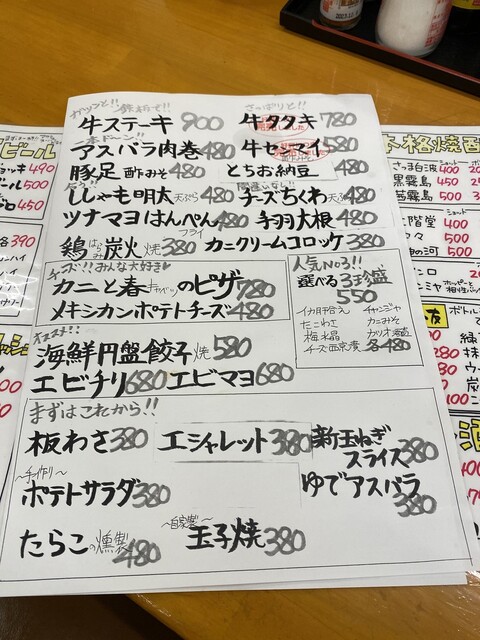 ガツンと!! 鉄板で!!
牛ステーキ 900
さっぱりと!!
牛タタキ 780
一本ドーン!!
アスパラ肉巻 480
牛センマイ 580
酢みそ
豚足 酢みそ 480
とちお納豆 480
ししゃも明太 天ぷら 480
チーズちくわ 天ぷら 480
ツナマヨはんぺん フライ 480
手羽大根 480
鶏はらみ炭火焼 380
カニクリームコロッケ 380
チーズ!!みんな大好き
カニと春キャベツのピザ 780
メキシカンポテトチーズ 480
人気No3!!
選べる3珍盛
550
イカ肝合え
たこわさ
梅水晶
チーズ西京漬
チャンジャ
カニみそ
カツオ酒盗
各480
オススメ!!
海鮮円盤餃子 焼 580
エビチリ 680 エビマヨ 680
まずはこれから!!
板わさ 380
エシャレット 380
新玉ねぎ
スライス 380
~手作り~
ポテトサラダ 380
ゆでアスパラ
380
たらこの燻製 480
~自家製~
玉子焼 380
ビール
490
500
450
390
本格焼酎
さつま白波 400
黒霧島 450
茜霧島 450
ショット
二階堂 400
500
の河 500